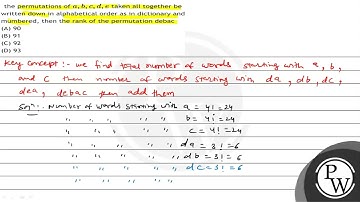 the permutations of a, b, c, d, e taken all together be
written down in alphabetical order as in dictionary and
numbered, then the rank of the permutation debac
(A) 90
(B) 91
(C) 92
(D) 93
Key concept :- we find total number of words starting with a, b,
and c then number of words starting with da, db, dc,
dea, debac then add them
Solⁿ:- Number of words starting with a = 4! = 24
" " " " " b = 4! = 24
" " " " " c = 4! = 24
" " " " " da = 3! = 6
" " " " " db = 3! = 6
" " " " " dc = 3! = 6
" " " " "
PW